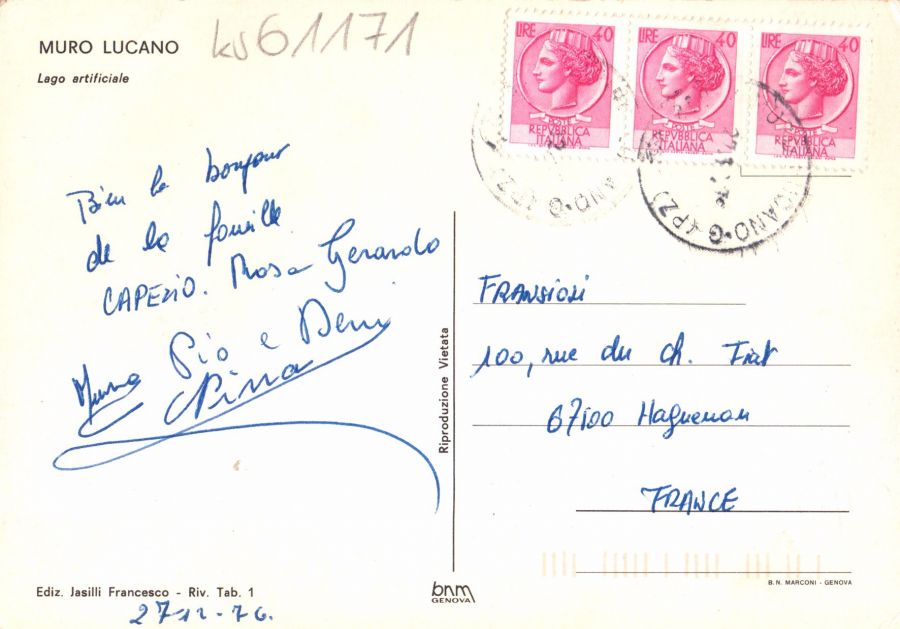 MURO LUCANO
Lago artificiale
ks61171
LIRE 40
POSTE
REPVBBLICA
ITALIANA
LIRE 40
POSTE
REPVBBLICA
ITALIANA
LIRE 40
POSTE
REPVBBLICA
ITALIANA
LUCANO-G (PZ)
Bien le bonjour
de la famille
CAPEZIO. Rosa Gerardo
Pio e
Pina
Riproduzione Vietata
FRANSIOSI
100, rue du ch. Fiat
67100 Haguenau
FRANCE
Ediz. Jasilli Francesco - Riv. Tab. 1
27-12-76.
bnm
GENOVA
B. N. MARCONI - GENOVA